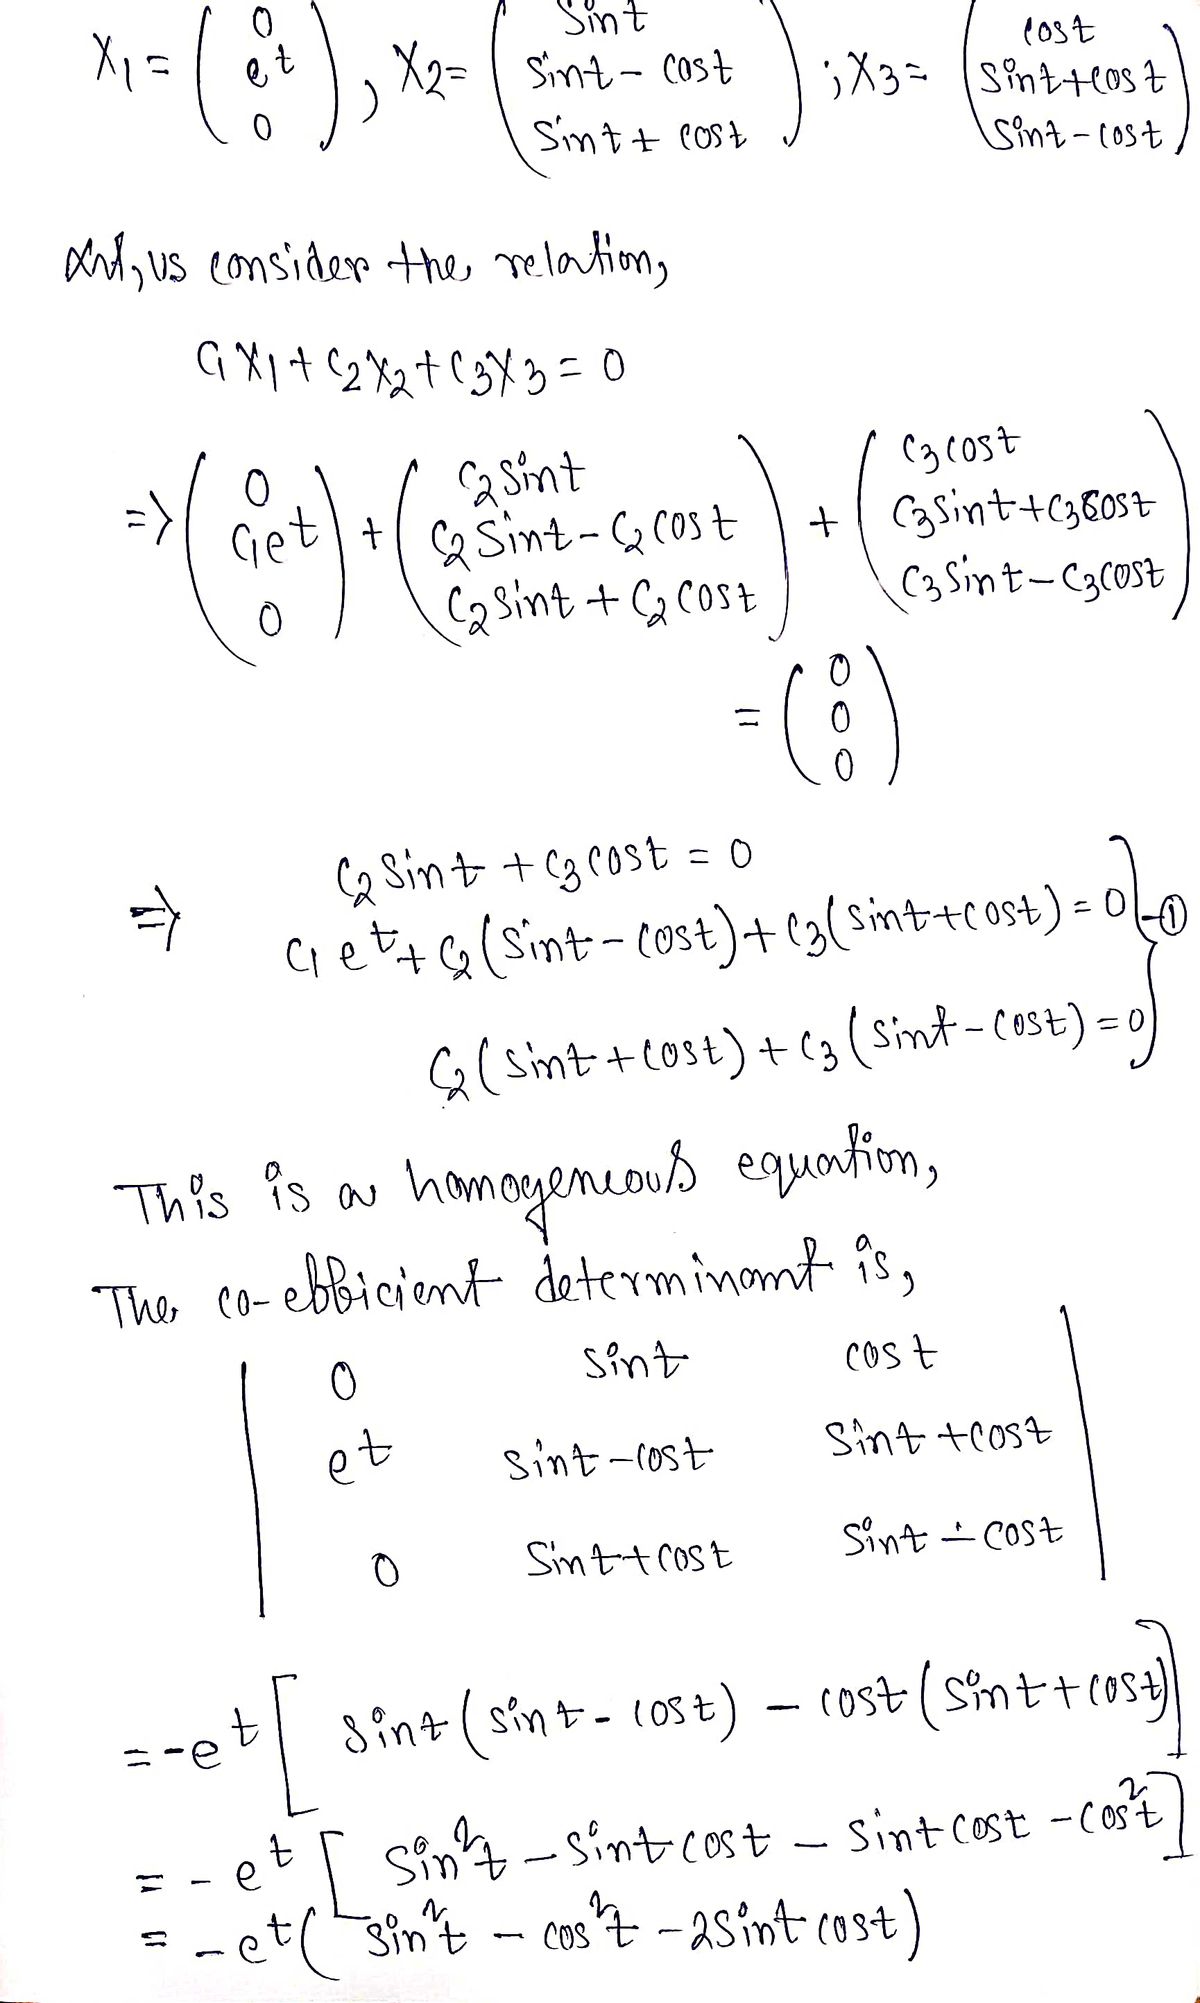 X1 = ( 0 et 0 ), X2 = ( Sint Sint - Cost Sint + Cost ) ; X3 = ( Cost Sint + Cost Sint - Cost )
Let, us consider the relation,
C1X1 + C2X2 + C3X3 = 0
=> ( 0 C1et 0 ) + ( C2Sint C2Sint - C2Cost C2Sint + C2Cost ) + ( C3Cost C3Sint + C3Cost C3Sint - C3Cost )
= ( 0 0 0 )
C2Sint + C3Cost = 0
=> C1et + C2(Sint - Cost) + C3(Sint + Cost) = 0 } - ①
C2(Sint + Cost) + C3(Sint - Cost) = 0
This is a homogeneous equation,
The co-efficient determinant is,
| 0 Sint Cost |
| et Sint - Cost Sint + Cost |
| 0 Sint + Cost Sint - Cost |
= -et [ Sint (Sint - Cost) - Cost (Sint + Cost) ]
= -et [ Sin²t - Sint Cost - Sint Cost - Cos²t ]
= -et ( Sin²t - Cos²t - 2Sint Cost )